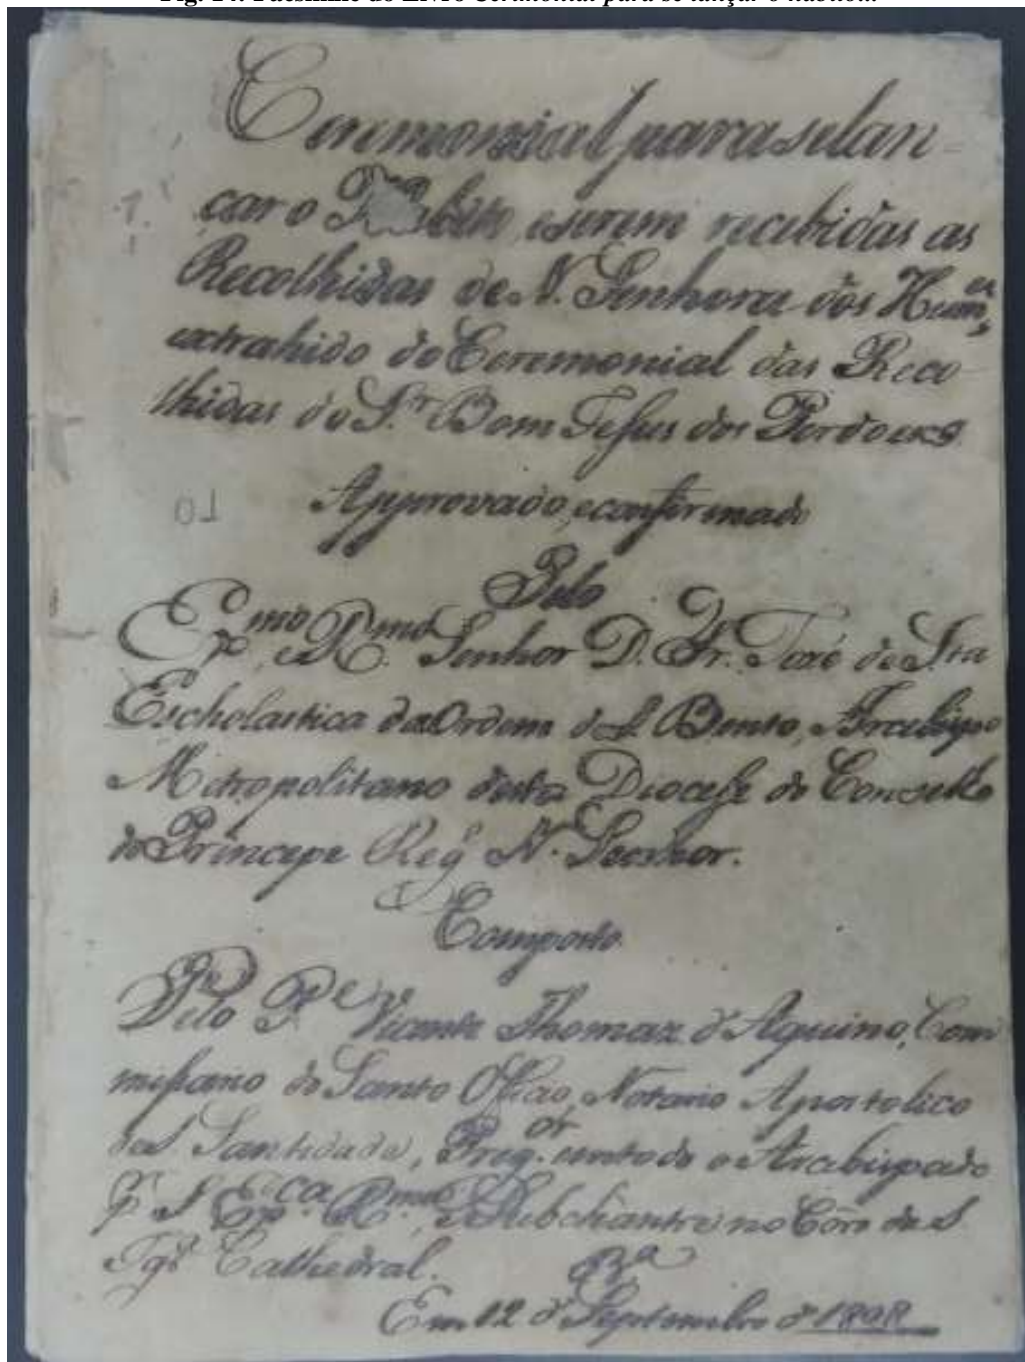 Fig. 14: Facsímile do Livro Cerimonial para se lançar o hábito...
Ceremonial para se lan-
car o Habito, e serem recebidas as
Recolhidas de N. Senhora dos Hum.es,
extrahido do Ceremonial das Reco-
lhidas do S.r Bom Jesus dos Perdoens
Approvado, e confirmado
Pelo
Ex.mo e R.mo Senhor D. Fr. José de Sta
Escholastica da Ordem de S. Bento, Arcebispo
Metropolitano desta Diocese do Conselho
do Principe Reg.e N. Senhor.
Composto
Pelo P.e Vicente Thomaz d'Aquino, Com-
missario do Santo Officio, Notario Apostolico
de S. Santidade, Preg.or em todo o Arcebispado
p. S. Ex.ca R.ma, e Subchantre no Côro da S.
Igr.a Cathedral.
B.a
Em 12 d' Septembro d' 1808